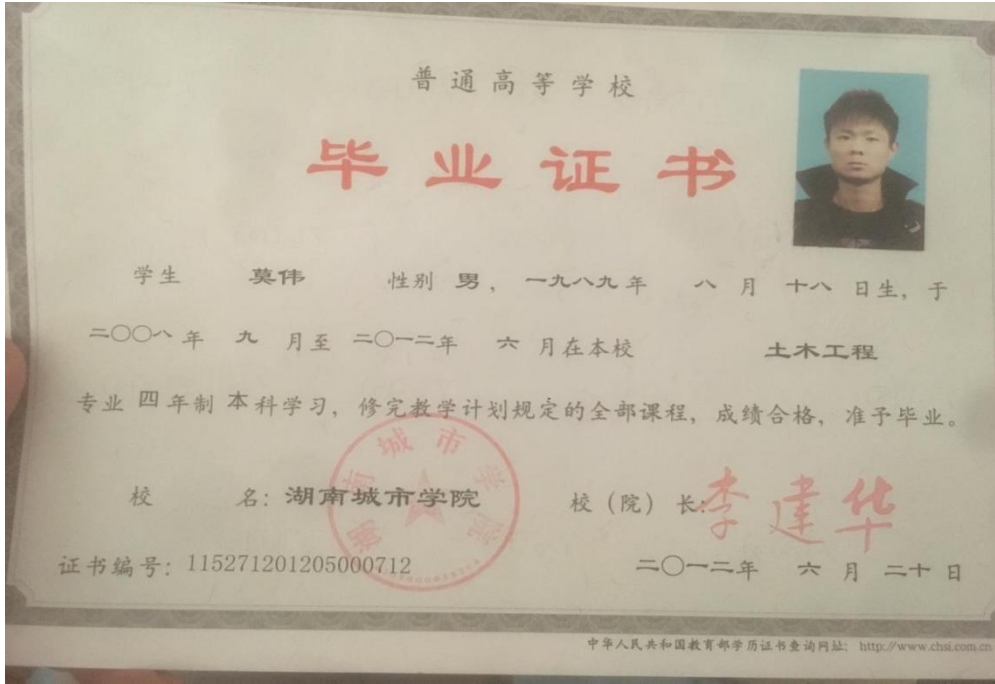 普通高等学校
毕业证书
学生 莫伟 性别 男，一九八九年 八 月 十八 日生，于
二〇〇八年 九 月至 二〇一二年 六 月在本校 土木工程
专业 四年制 本科学习，修完教学计划规定的全部课程，成绩合格，准予毕业。
湖南城市学院
校 名：湖南城市学院 校（院）长：李建华
证书编号：115271201205000712 二〇一二年 六 月 二十 日
中华人民共和国教育部学历证书查询网址：http://www.chsi.com.cn